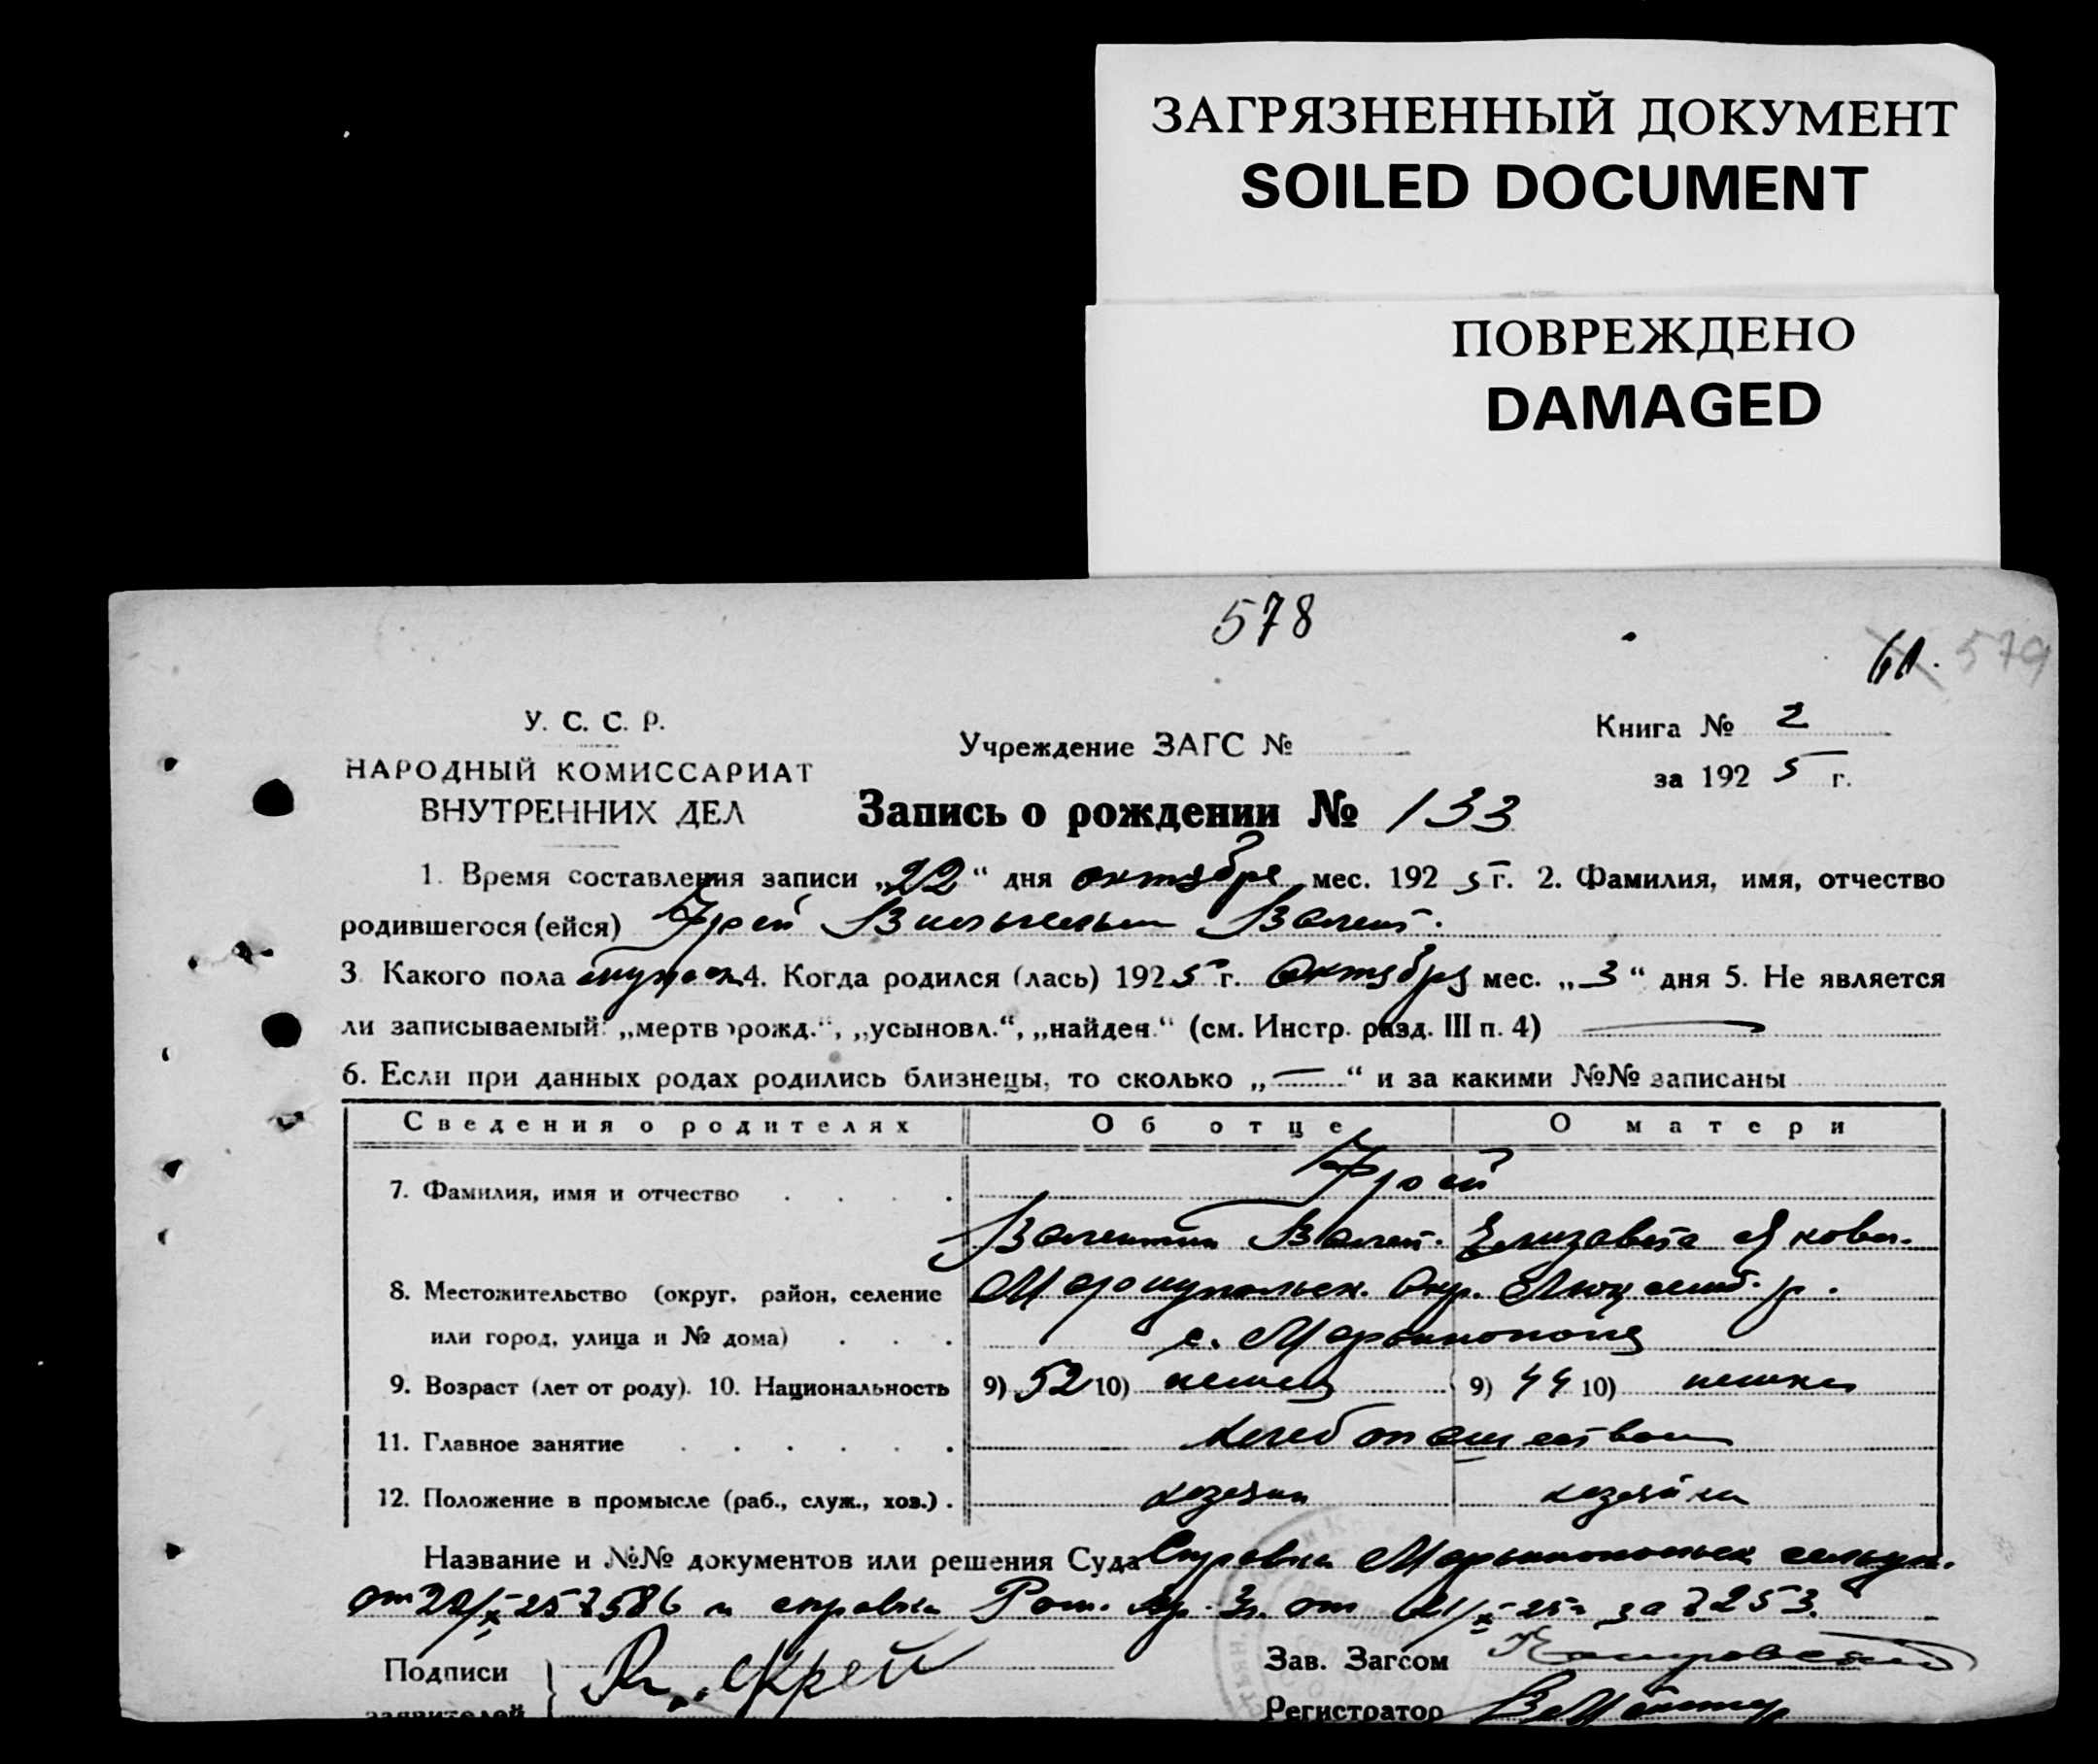 ЗАГРЯЗНЕННЫЙ ДОКУМЕНТ
SOILED DOCUMENT
ПОВРЕЖДЕНО
DAMAGED
578
61. 579
У. С. С. Р.
НАРОДНЫЙ КОМИССАРИАТ
ВНУТРЕННИХ ДЕЛ
Учреждение ЗАГС №
Книга № 2
за 1925 г.
Запись о рождении № 133
1. Время составления записи „22“ дня октября мес. 1925 г. 2. Фамилия, имя, отчество
родившегося (ейся) Фрей Вильгельм Вален.
3. Какого пола мужск 4. Когда родился (лась) 1925 г. Октября мес. „3“ дня 5. Не является
ли записываемый: „мертворожд.“, „усыновл.“, „найден.“ (см. Инстр. разд. III п. 4)
6. Если при данных родах родились близнецы, то сколько „—“ и за какими №№ записаны
Сведения о родителях Об отце О матери
7. Фамилия, имя и отчество Фрей
Валентин Вален. Елизавета Яковл.
8. Местожительство (округ, район, селение Мариупольск. Окр. Люксемб. р.
или город, улица и № дома) с.
9. Возраст (лет от роду). 10. Национальность 9) 52 10) немец 9) 44 10) немка
11. Главное занятие хлебопашеством
12. Положение в промысле (раб., служ., хоз.) хозяин хозяйка
Название и №№ документов или решения Суда Справка
от 586 и справка от за № 253.
Подписи
заявителей
Зав. Загсом
Регистратор